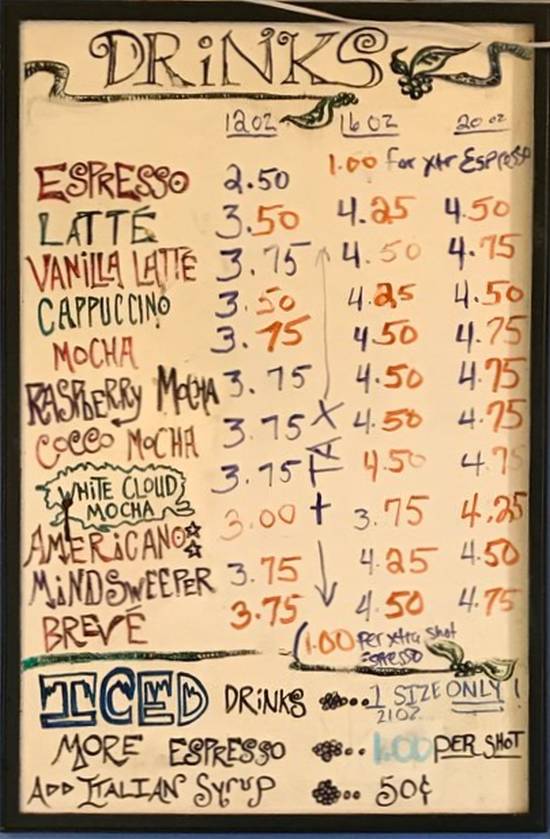 DRiNKS
12 OZ 16 OZ 20 OZ
ESPRESSO 2.50 1.00 for xtr Espresso
LATTÉ 3.50 4.25 4.50
VANILLA LATTÉ 3.75 4.50 4.75
CAPPUCCINO 3.50 4.25 4.50
MOCHA 3.75 4.50 4.75
RASPBERRY MOCHA 3.75 4.50 4.75
COCCO MOCHA 3.75 4.50 4.75
WHITE CLOUD MOCHA 3.75 4.50 4.75
AMERiCANO 3.00 3.75 4.25
MiNDSWEEPER 3.75 4.25 4.50
BREVÉ 3.75 4.50 4.75
(1.00 Per xtra shot
Espresso
ICED DRiNKS 1 SIZE ONLY!
21 OZ.
MORE ESPRESSO 1.00 PER SHOT
ADD ITALIAN Syrup 50¢